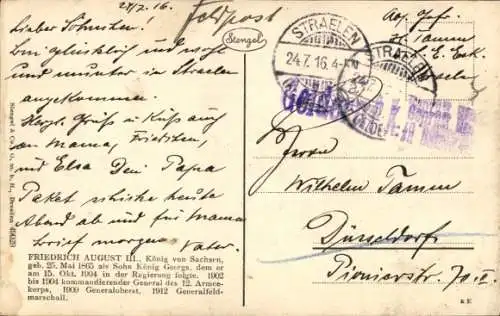 24/7. 16.
Feldpost
Stengel
Lieber Söhnchen!
Bin glücklich und wohl
und munter in Straelen
angekommen.
Herzl. Gruß u Kuß auch
an Mama, Friedchen,
und Elsa Dein Papa
Paket schicke heute
Abend ab und für Mama
Brief morgen Vater.
FRIEDRICH AUGUST III., König von Sachsen,
geb. 25. Mai 1865 als Sohn König Georgs, dem er
am 15. Okt. 1904 in der Regierung folgte. 1902
bis 1904 kommandierender General des 12. Armee-
korps, 1909 Generaloberst, 1912 Generalfeld-
marschall.
Stengel & Co., G. m. b. H., Dresden 49029
STRAELEN
24.7.16.4-5N
STRAELEN
Abs. Gefr.
Tamm
Straelen
Herrn
Wilhelm Tamm
Düsseldorf
Pionierstr. 70. II